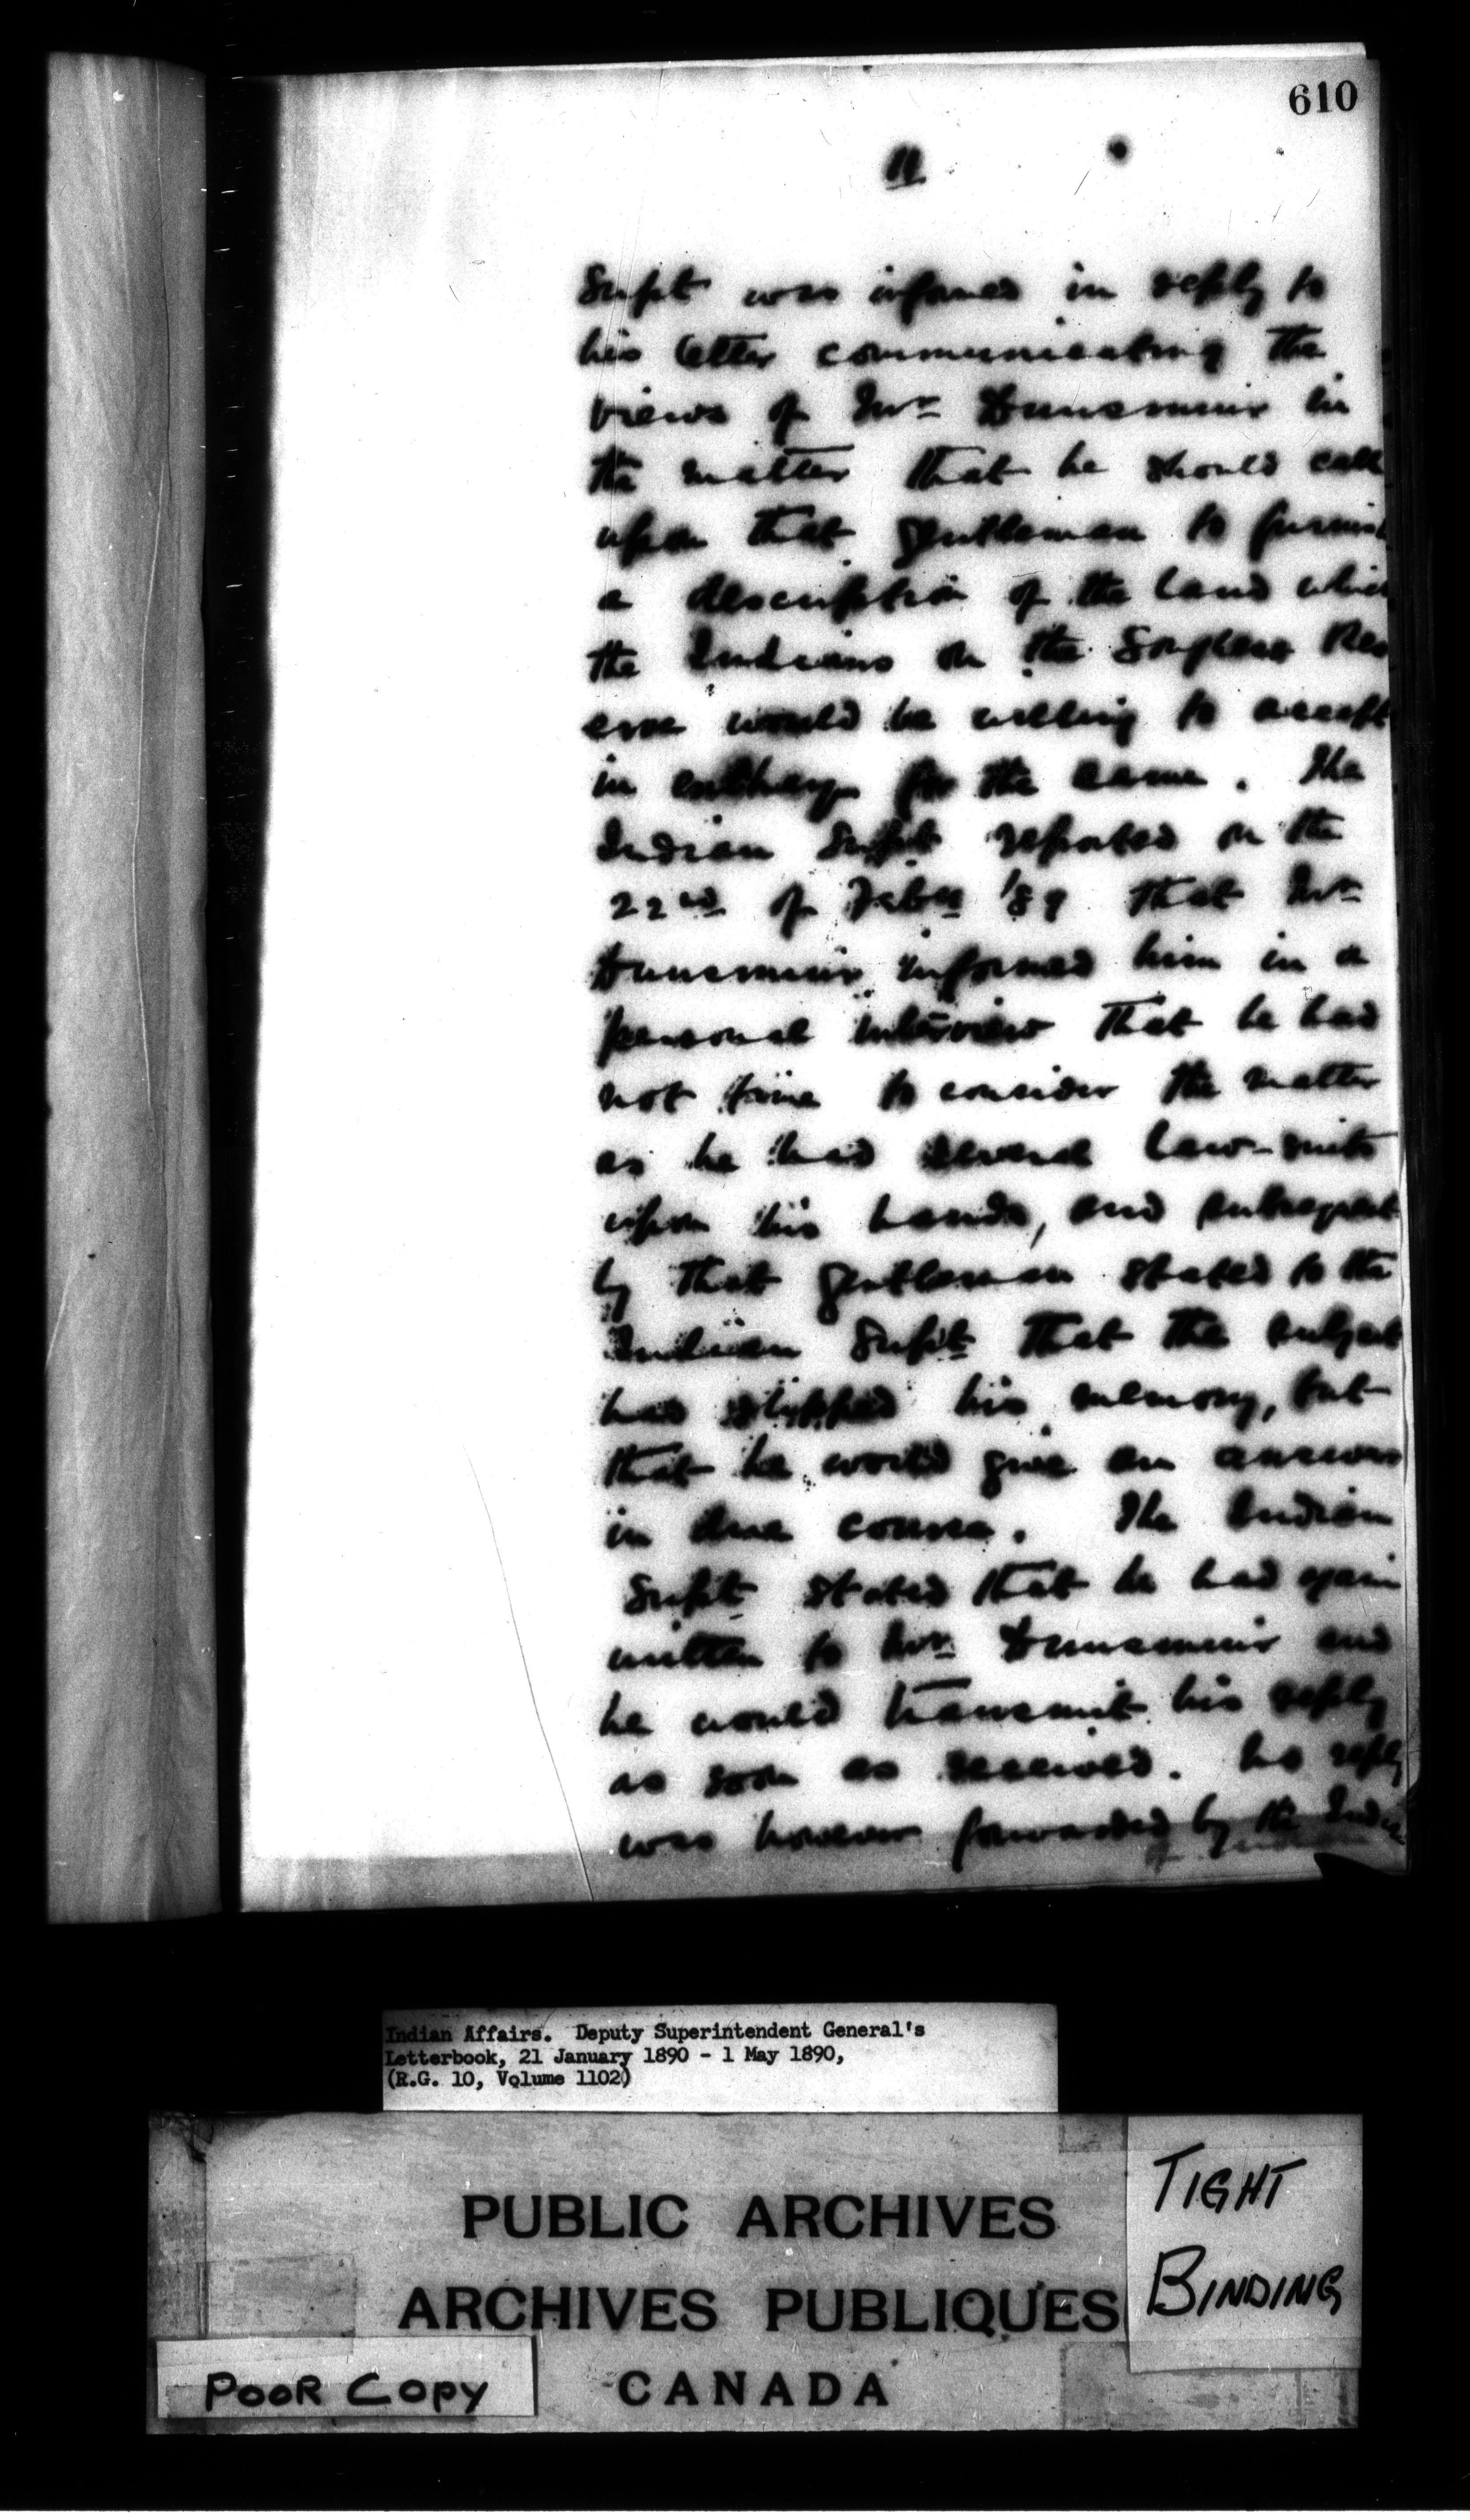 610
11
Supt was informed in reply to
his letter communicating the
views of Mr Dunsmuir in
the matter that he should call
upon that gentleman to furnish
a description of the land which
the Indians on the Songhees Res
erve would be willing to accept
in exchange for the same. The
Indian Supt reported on the
22nd of Feby '89 that Mr
Dunsmuir informed him in a
personal interview that he had
not time to consider the matter
as he had several law-suits
upon his hands, and subsequent
ly that gentleman stated to the
Indian Supt that the subject
had slipped his memory, but
that he would give an answer
in due course. The Indian
Supt stated that he had again
written to Mr Dunsmuir and
he would transmit his reply
as soon as received. No reply
was however forwarded by the Indian
Indian Affairs. Deputy Superintendent General's
Letterbook, 21 January 1890 - 1 May 1890,
(R.G. 10, Volume 1102)
PUBLIC ARCHIVES
ARCHIVES PUBLIQUES
CANADA
TIGHT
BINDING
POOR COPY